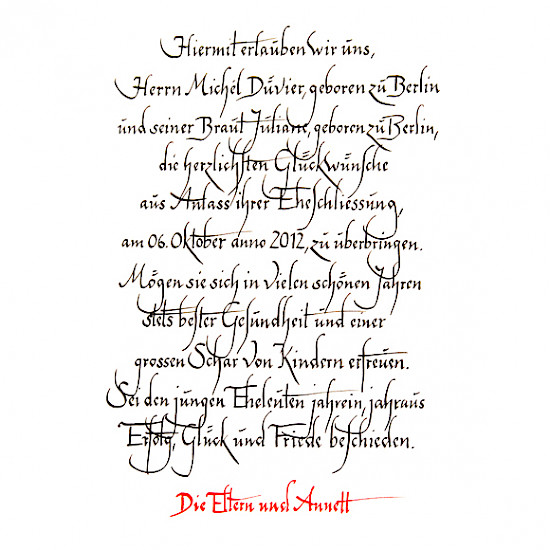 Hiermit erlauben wir uns,
Herrn Michél Duvier, geboren zu Berlin
und seiner Braut Juliane, geboren zu Berlin,
die herzlichsten Glückwünsche
aus Anlass ihrer Eheschliessung,
am 06. Oktober anno 2012, zu überbringen.
Mögen sie sich in vielen schönen Jahren
stets bester Gesundheit und einer
grossen Schar von Kindern erfreuen.
Sei den jungen Eheleuten jahrein, jahraus
Erfolg, Glück und Friede beschieden.
Die Eltern und Annett